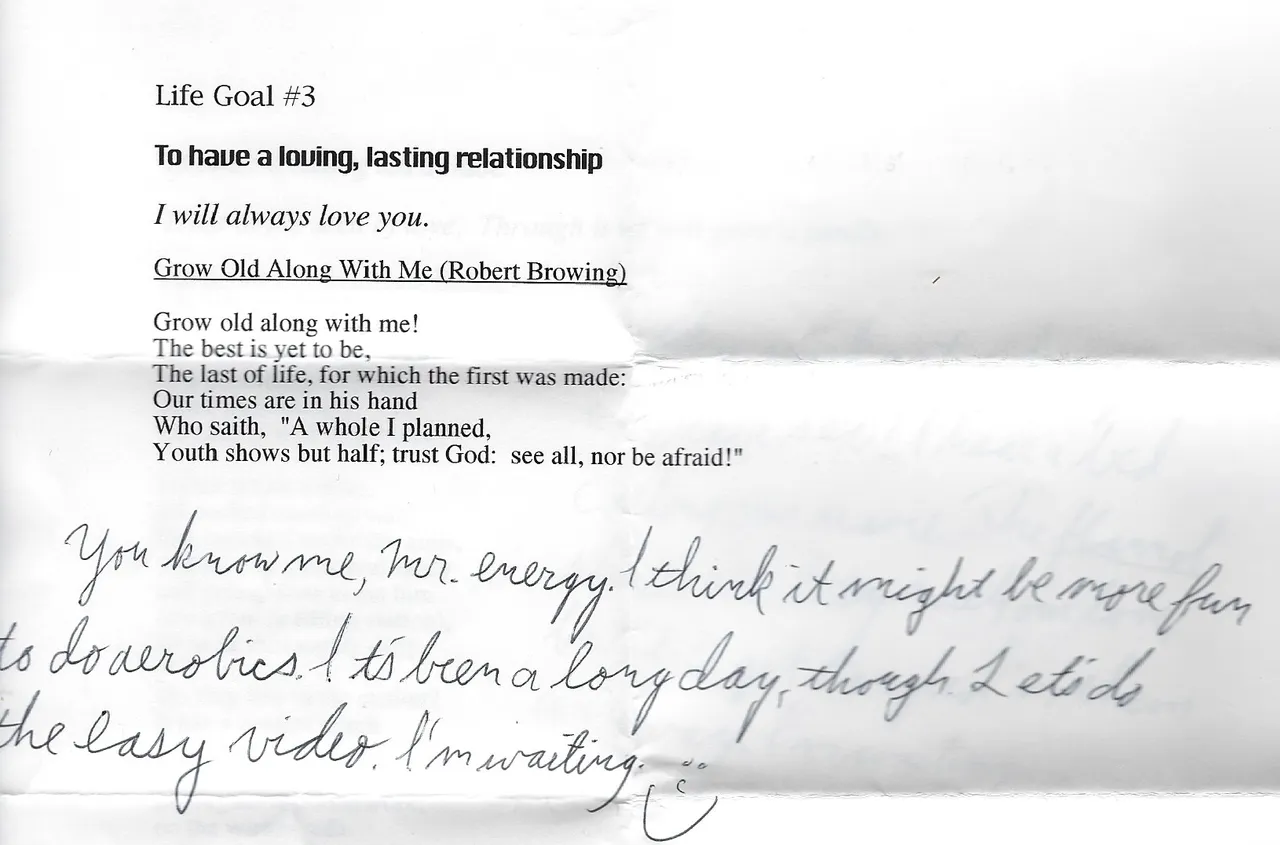 Life Goal #3
To have a loving, lasting relationship
I will always love you.
Grow Old Along With Me (Robert Browing)
Grow old along with me!
The best is yet to be,
The last of life, for which the first was made:
Our times are in his hand
Who saith, "A whole I planned,
Youth shows but half; trust God: see all, nor be afraid!"
You know me, Mr. energy. I think it might be more fun
to do aerobics. It's been a long day, though. Let's do
the easy video. I'm waiting.